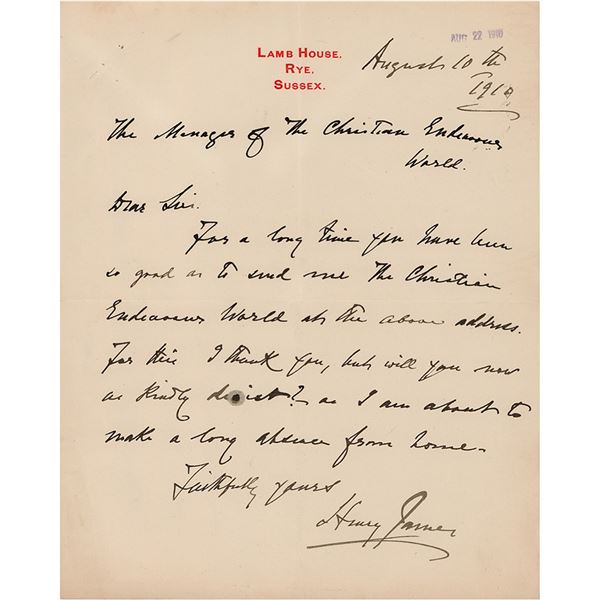 AUG 22 1910
LAMB HOUSE,
RYE,
SUSSEX.
August 10th
1910.
The Manager of The Christian Endeavour
World.
Dear Sir.
For a long time you have been
so good as to send me The Christian
Endeavour World at the above address.
For this I thank you, but will you now
as kindly desist? — as I am about to
make a long absence from home.
Faithfully yours
Henry James